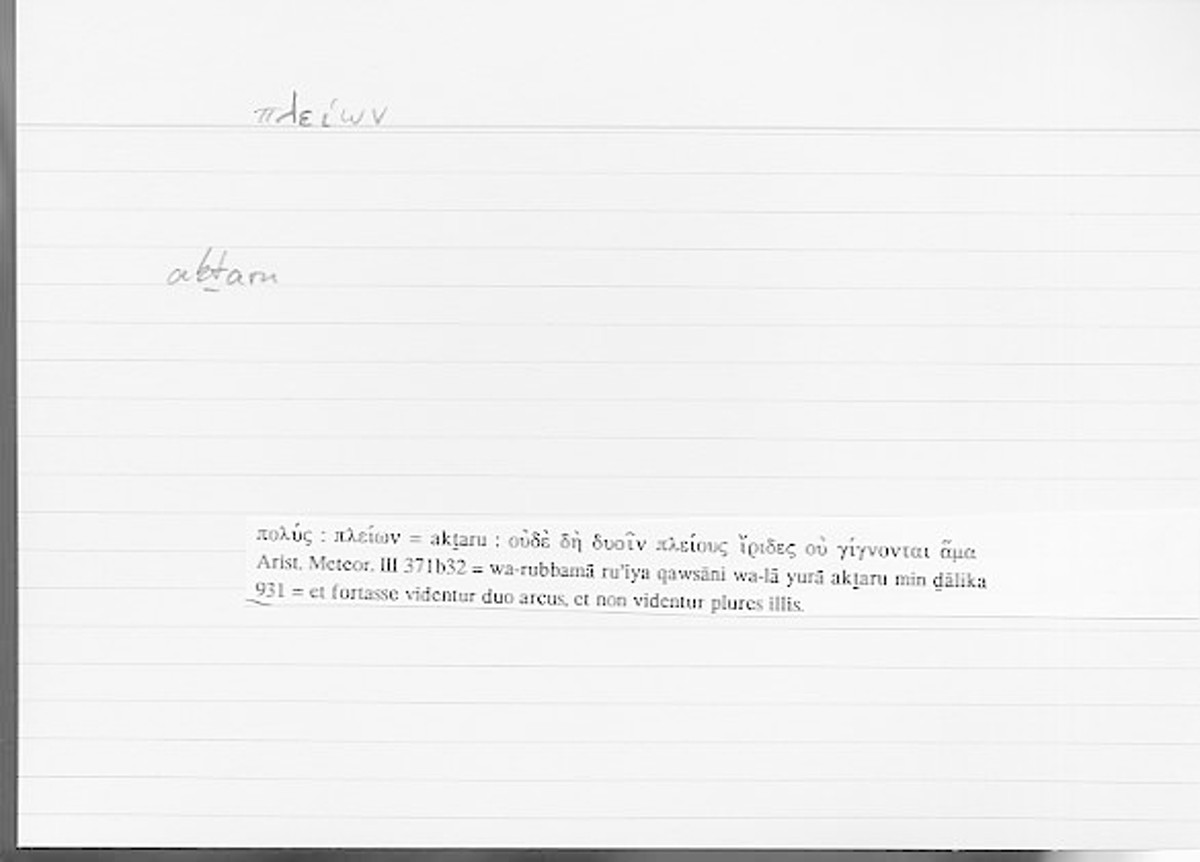 πλείων
akṯaru
πολύς : πλείων = akṯaru : οὐδὲ δὴ δυοῖν πλείους ἴριδες οὐ γίγνονται ἅμα
Arist. Meteor. III 371b32 = wa-rubbamā ru'iya qawsāni wa-lā yurā akṯaru min ḏālika
931 = et fortasse videntur duo arcus, et non videntur plures illis.